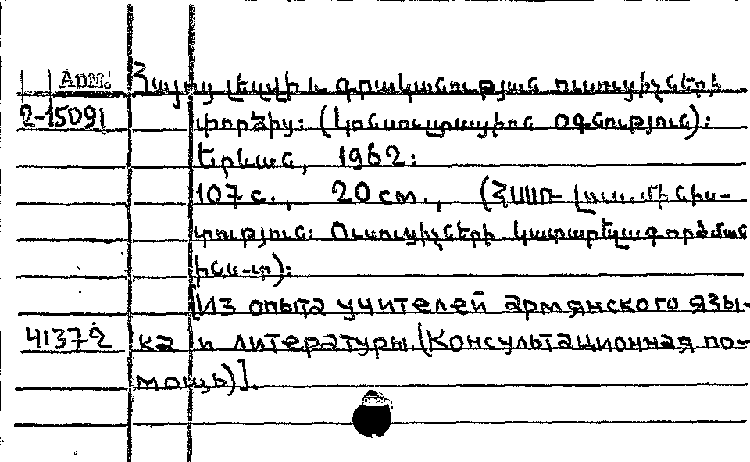 Арм.
Հայոց լեզվի և գրականության ուսուցիչների
2-15091
փորձից: (Կոնսուլտացիոն օգնություն):
Երևան, 1962:
107 с., 20 см., (ՀՍՍՌ լուս. մինիս-
տրություն: Ուսուցիչների կատարելագործման
ինս-տ):
[Из опыта учителей армянского язы-
41372
ка и литературы. (Консультационная по-
мощь)].